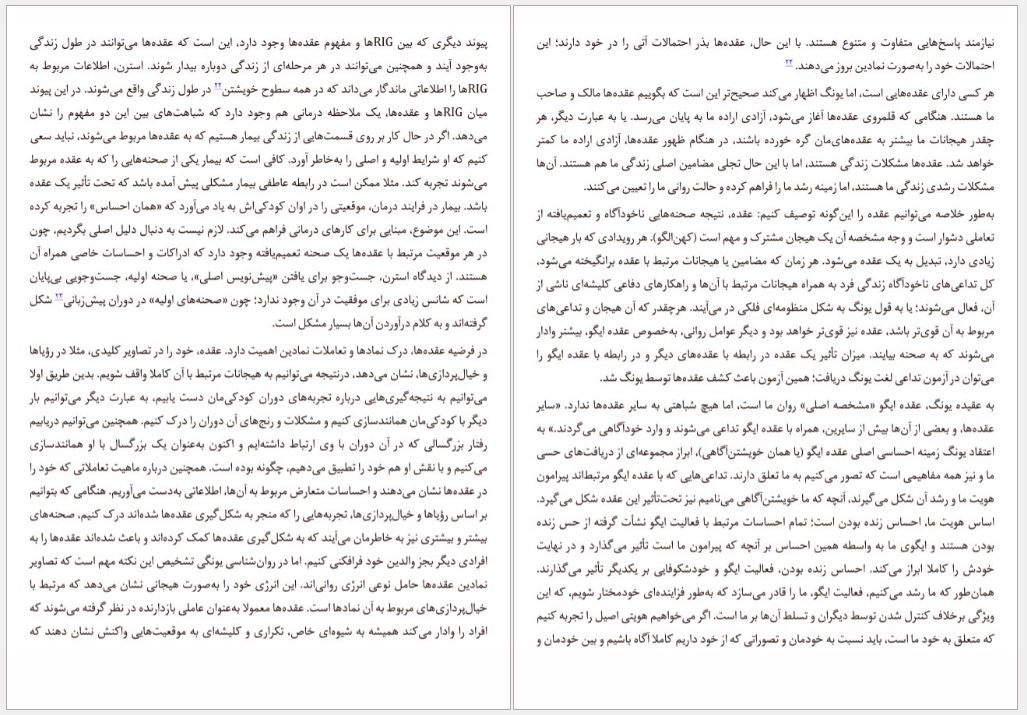 پیوند دیگری که بین RIGها و مفهوم عقده‌ها وجود دارد، این است که عقده‌ها می‌توانند در طول زندگی
به‌وجود آیند و همچنین می‌توانند در هر مرحله‌ای از زندگی دوباره بیدار شوند. استرن، اطلاعات مربوط به
RIGها را اطلاعاتی ماندگار می‌داند که در همه سطوح خویشتن۲۲ در طول زندگی واقع می‌شوند. در این پیوند
میان RIGها و عقده‌ها، یک ملاحظه درمانی هم وجود دارد که شباهت‌های بین این دو مفهوم را نشان
می‌دهد. اگر در حال کار بر روی قسمت‌هایی از زندگی بیمار هستیم که به عقده‌ها مربوط می‌شوند، نباید سعی
کنیم که او شرایط اولیه و اصلی را به‌خاطر آورد. کافی است که بیمار یکی از صحنه‌هایی را که به عقده مربوط
می‌شوند تجربه کند. مثلا ممکن است در رابطه عاطفی بیمار مشکلی پیش آمده باشد که تحت تأثیر یک عقده
باشد. بیمار در فرایند درمان، موقعیتی را در اوان کودکی‌اش به یاد می‌آورد که «همان احساس» را تجربه کرده
است. این موضوع، مبنایی برای کارهای درمانی فراهم می‌کند. لازم نیست به دنبال دلیل اصلی بگردیم، چون
در هر موقعیت مرتبط با عقده‌ها یک صحنه تعمیم‌یافته وجود دارد که ادراکات و احساسات خاصی همراه آن
هستند. از دیدگاه استرن، جست‌وجو برای یافتن «پیش‌نویس اصلی»، یا صحنه اولیه، جست‌وجویی بی‌پایان
است که شانس زیادی برای موفقیت در آن وجود ندارد؛ چون «صحنه‌های اولیه» در دوران پیش‌زبانی۲۳ شکل
گرفته‌اند و به کلام درآوردن آن‌ها بسیار مشکل است.
در فرضیه عقده‌ها، درک نمادها و تعاملات نمادین اهمیت دارد. عقده، خود را در تصاویر کلیدی، مثلا در رؤیاها
و خیال‌پردازی‌ها، نشان می‌دهد، درنتیجه می‌توانیم به هیجانات مرتبط با آن کاملا واقف شویم. بدین طریق اولا
می‌توانیم به نتیجه‌گیری‌هایی درباره تجربه‌های دوران کودکی‌مان دست یابیم، به عبارت دیگر می‌توانیم بار
دیگر با کودکی‌مان همانندسازی کنیم و مشکلات و رنج‌های آن دوران را درک کنیم. همچنین می‌توانیم دریابیم
رفتار بزرگسالی که در آن دوران با وی ارتباط داشته‌ایم و اکنون به‌عنوان یک بزرگسال با او همانندسازی
می‌کنیم و با نقش او هم خود را تطبیق می‌دهیم، چگونه بوده است. همچنین درباره ماهیت تعاملاتی که خود را
در عقده‌ها نشان می‌دهند و احساسات متعارض مربوط به آن‌ها، اطلاعاتی به‌دست می‌آوریم. هنگامی که بتوانیم
بر اساس رؤیاها و خیال‌پردازی‌ها، تجربه‌هایی را که منجر به شکل‌گیری عقده‌ها شده‌اند درک کنیم، صحنه‌های
بیشتر و بیشتری نیز به خاطرمان می‌آیند که به شکل‌گیری عقده‌ها کمک کرده‌اند و باعث شده‌اند عقده‌ها را به
افرادی دیگر بجز والدین خود فرافکنی کنیم. اما در روان‌شناسی یونگی تشخیص این نکته مهم است که تصاویر
نمادین عقده‌ها حامل نوعی انرژی روانی‌اند. این انرژی خود را به‌صورت هیجانی نشان می‌دهد که مرتبط با
خیال‌پردازی‌های مربوط به آن نمادها است. عقده‌ها معمولا به‌عنوان عاملی بازدارنده در نظر گرفته می‌شوند که
افراد را وادار می‌کند همیشه به شیوه‌ای خاص، تکراری و کلیشه‌ای به موقعیت‌هایی واکنش نشان دهند که
نیازمند پاسخ‌هایی متفاوت و متنوع هستند. با این حال، عقده‌ها بذر احتمالات آتی را در خود دارند؛ این
احتمالات خود را به‌صورت نمادین بروز می‌دهند.۲۴
هر کسی دارای عقده‌هایی است، اما یونگ اظهار می‌کند صحیح‌تر این است که بگوییم عقده‌ها مالک و صاحب
ما هستند. هنگامی که قلمروی عقده‌ها آغاز می‌شود، آزادی اراده ما به پایان می‌رسد. یا به عبارت دیگر، هر
چقدر هیجانات ما بیشتر به عقده‌های‌مان گره خورده باشند، در هنگام ظهور عقده‌ها، آزادی اراده ما کمتر
خواهد شد. عقده‌ها مشکلات زندگی هستند، اما با این حال تجلی مضامین اصلی زندگی ما هم هستند. آن‌ها
مشکلات رشدی زندگی ما هستند، اما زمینه رشد ما را فراهم کرده و حالت روانی ما را تعیین می‌کنند.
به‌طور خلاصه می‌توانیم عقده را این‌گونه توصیف کنیم: عقده، نتیجه صحنه‌هایی ناخودآگاه و تعمیم‌یافته از
تعاملی دشوار است و وجه مشخصه آن یک هیجان مشترک و مهم است (کهن‌الگو). هر رویدادی که بار هیجانی
زیادی دارد، تبدیل به یک عقده می‌شود. هر زمان که مضامین یا هیجانات مرتبط با عقده برانگیخته می‌شود،
کل تداعی‌های ناخودآگاه زندگی فرد به همراه هیجانات مرتبط با آن‌ها و راهکارهای دفاعی کلیشه‌ای ناشی از
آن، فعال می‌شوند؛ یا به قول یونگ به شکل منظومه‌ای فلکی در می‌آیند. هرچقدر که آن هیجان و تداعی‌های
مربوط به آن قوی‌تر باشد، عقده نیز قوی‌تر خواهد بود و دیگر عوامل روانی، به‌خصوص عقده ایگو، بیشتر وادار
می‌شوند که به صحنه بیایند. میزان تأثیر یک عقده در رابطه با عقده‌های دیگر و در رابطه با عقده ایگو را
می‌توان در آزمون تداعی لغت یونگ دریافت؛ همین آزمون باعث کشف عقده‌ها توسط یونگ شد.
به عقیده یونگ، عقده ایگو «مشخصه اصلی» روان ما است، اما هیچ شباهتی به سایر عقده‌ها ندارد. «سایر
عقده‌ها، و بعضی از آن‌ها بیش از سایرین، همراه با عقده ایگو تداعی می‌شوند و وارد خودآگاهی می‌گردند.» به
اعتقاد یونگ زمینه احساسی اصلی عقده ایگو (یا همان خویشتن‌آگاهی)، ابراز مجموعه‌ای از دریافت‌های حسی
ما و نیز همه مفاهیمی است که تصور می‌کنیم به ما تعلق دارند. تداعی‌هایی که با عقده ایگو مرتبط‌اند پیرامون
هویت ما و رشد آن شکل می‌گیرند، آنچه که ما خویشتن‌آگاهی می‌نامیم نیز تحت‌تأثیر این عقده شکل می‌گیرد.
اساس هویت ما، احساس زنده بودن است؛ تمام احساسات مرتبط با فعالیت ایگو نشأت گرفته از حس زنده
بودن هستند و ایگوی ما به واسطه همین احساس بر آنچه که پیرامون ما است تأثیر می‌گذارد و در نهایت
خودش را کاملا ابراز می‌کند. احساس زنده بودن، فعالیت ایگو و خودشکوفایی بر یکدیگر تأثیر می‌گذارند.
همان‌طور که ما رشد می‌کنیم، فعالیت ایگو، ما را قادر می‌سازد که به‌طور فزاینده‌ای خودمختار شویم، که این
ویژگی برخلاف کنترل شدن توسط دیگران و تسلط آن‌ها بر ما است. اگر می‌خواهیم هویتی اصیل را تجربه کنیم
که متعلق به خود ما است، باید نسبت به خودمان و تصوراتی که از خود داریم کاملا آگاه باشیم و بین خودمان و